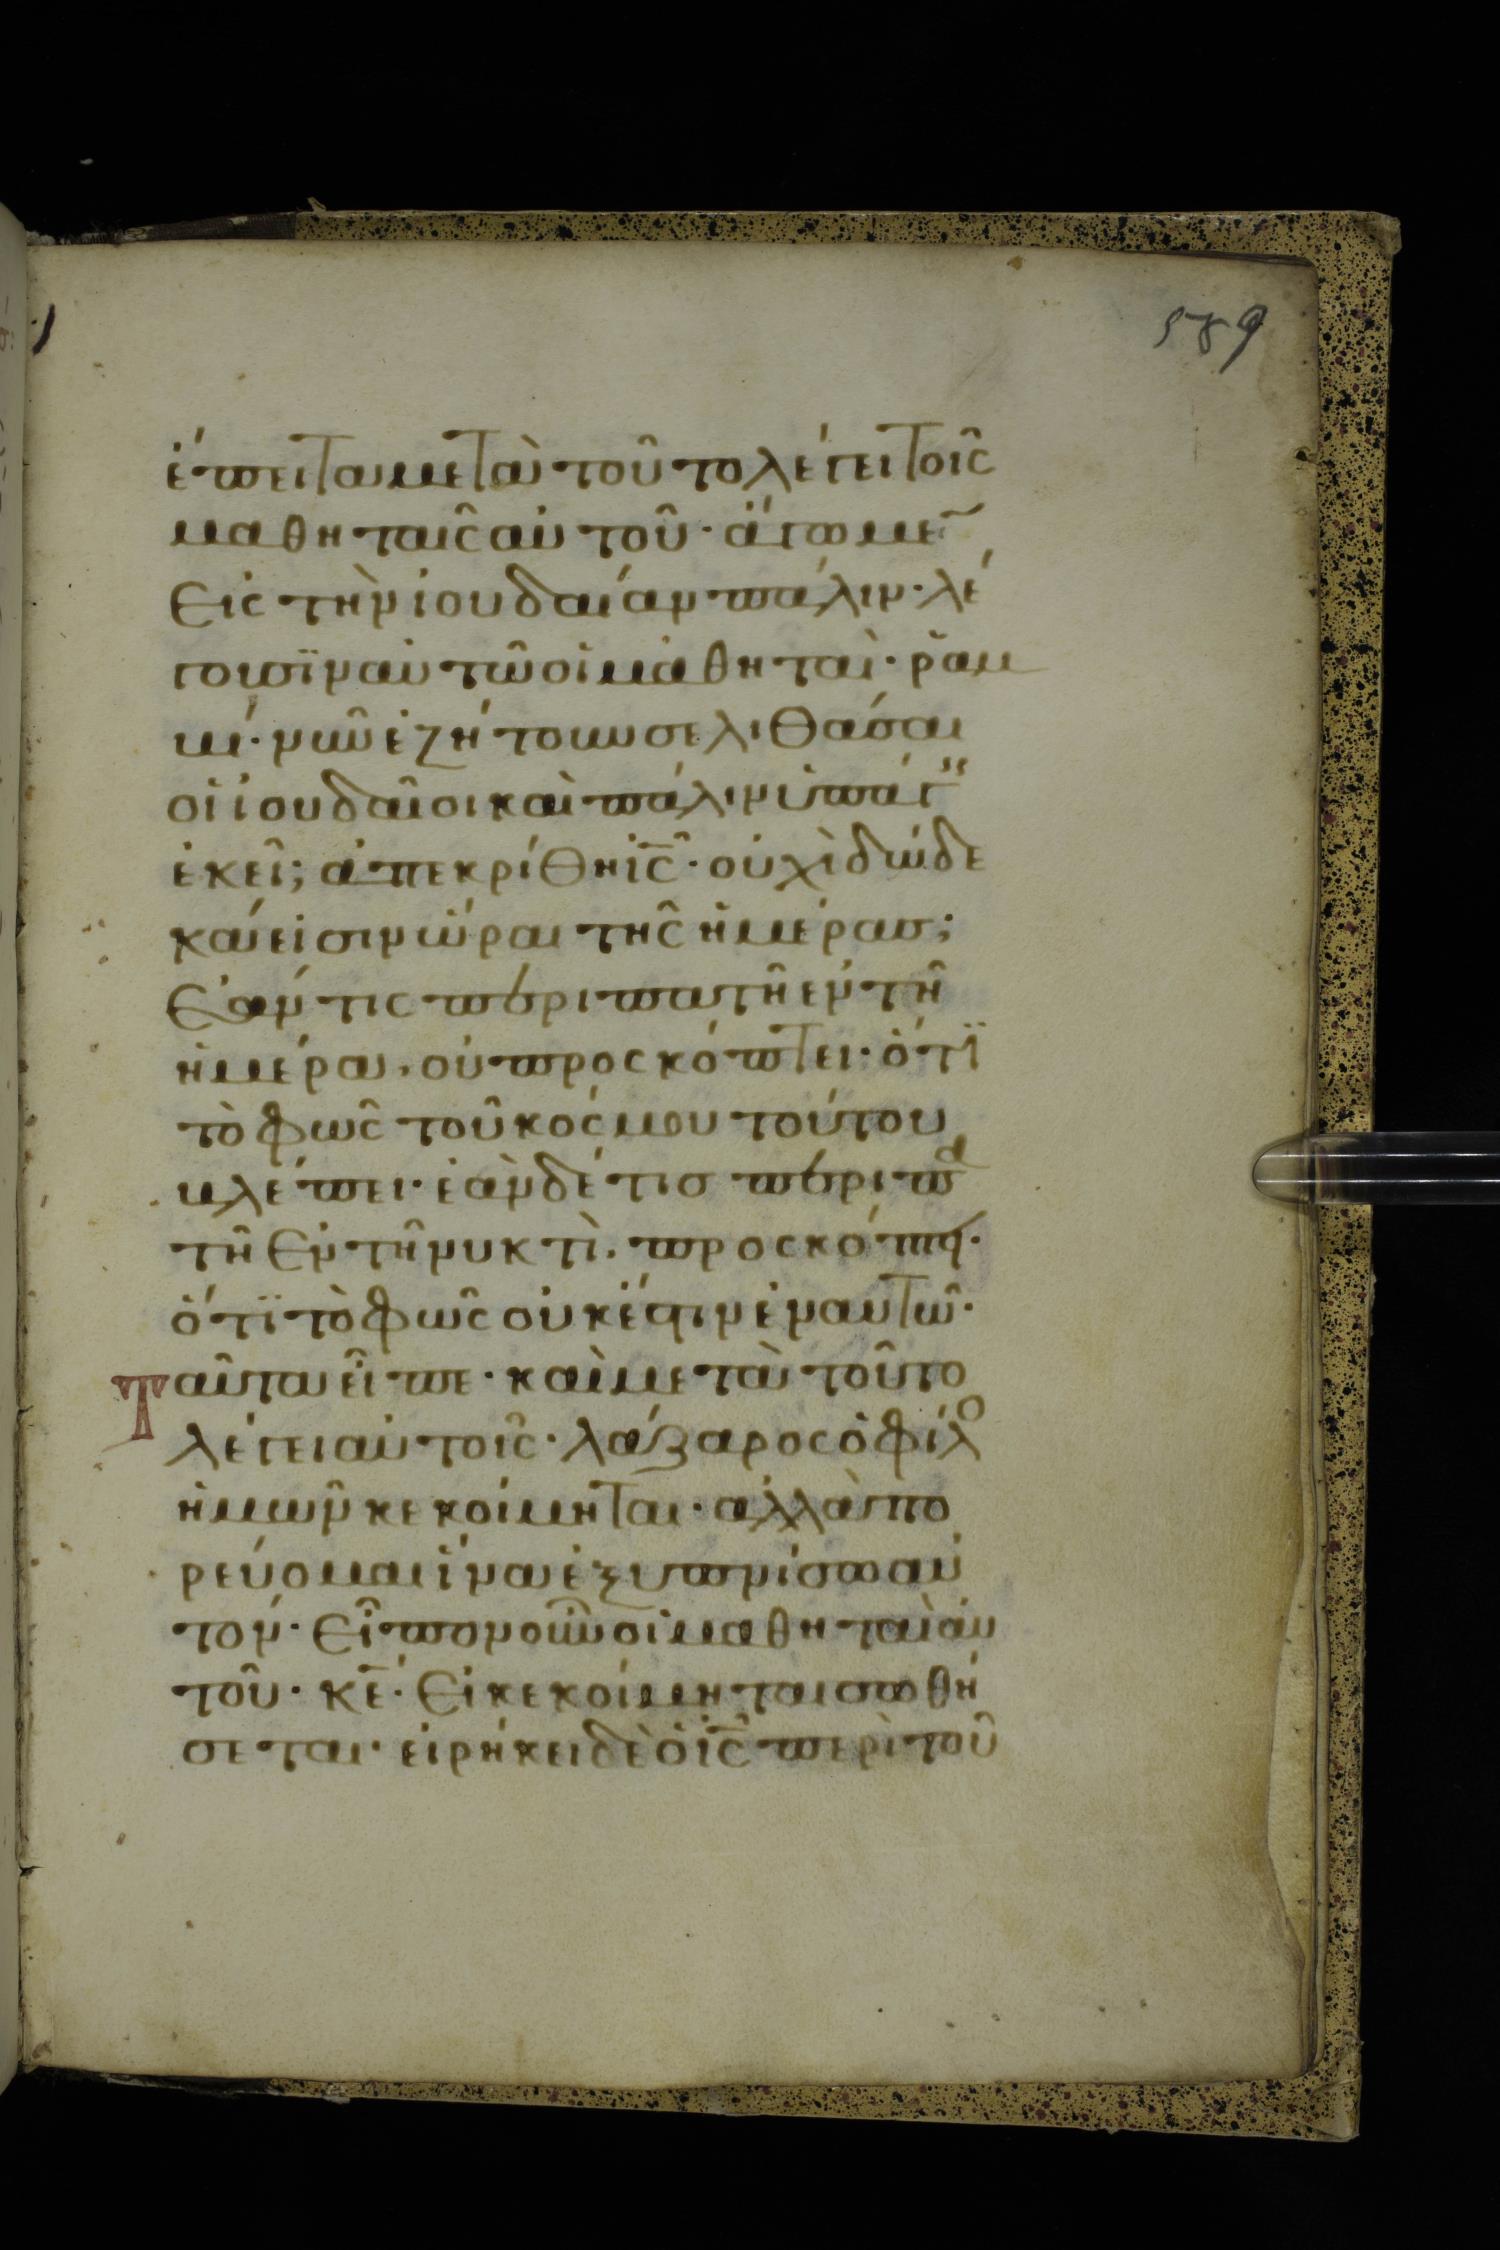 589
ἔπειτα μετὰ τοῦτο λέγει τοῖς
μαθηταῖς αὐτοῦ· ἄγωμε̄
εἰς τὴν ἰουδαίαν πάλιν· λέ
γουσϊν αὐτῶ οἱ μαθηταὶ· ραβ
βί· νῦν ἐζήτουν σε λιθάσαι
οἱ ἰουδαῖοι καὶ πάλιν ὑπάγ"
ἐκεῖ; ἀπεκρίθη ἰ̅ς̅· οὐχὶ δώδε
κά εἰσιν ὧραι τῆς ἡμέρας;
ἐάν τις περιπατῆ ἐν τῆ
ἡμέρα, οὐ προσκόπτει· ὅτϊ
τὸ φῶς τοῦ κόσμου τούτου
βλέπει· ἐὰν δέ τισ περιπα
τῆ ἐν τῆ νυκτὶ, προσκόπτει·
ὅτϊ τὸ φῶς οὐκ ἔστιν ἐν αὐτῶ·
Ταῦτα εἶπε· καὶ μετὰ τοῦτο
λέγει αὐτοῖς· λάζαρος ὁ φίλο
ἡμῶν κεκοίμηται· ἀλλὰ πο
ρεύομαι ἵνα ἐξυπνίσω αὐ
τόν· εἶπον οὖν οἱ μαθηταὶ αὐ
τοῦ· κ̅ε̅· εἰ κεκοίμηται σωθή
σεται· εἰρήκει δὲ ὁ ἰ̅ς̅ περὶ τοῦ